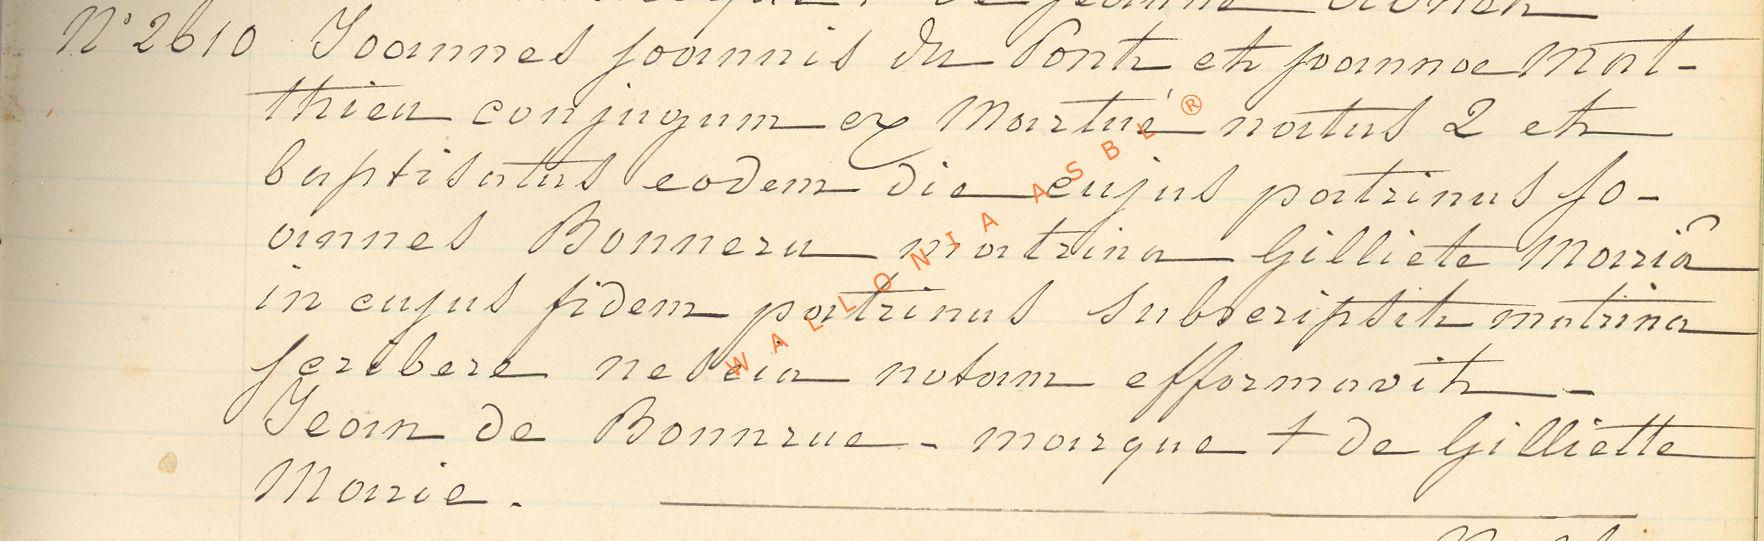 de Jeanne
N° 2610 Joannes Joannis du Pont et Joannae Mat-
thieu conjugum ex Martué natus 2 et
baptisatus eodem die cujus patrinus Jo-
annes Bonneru matrina Gilliete Mariâ
in cujus fidem patrinus subscripsit matrina
scribere nescia notam efformavit -
Jean de Bonnrue - marque + de Gilliette
Marie.
WALLONIA ASBL ®